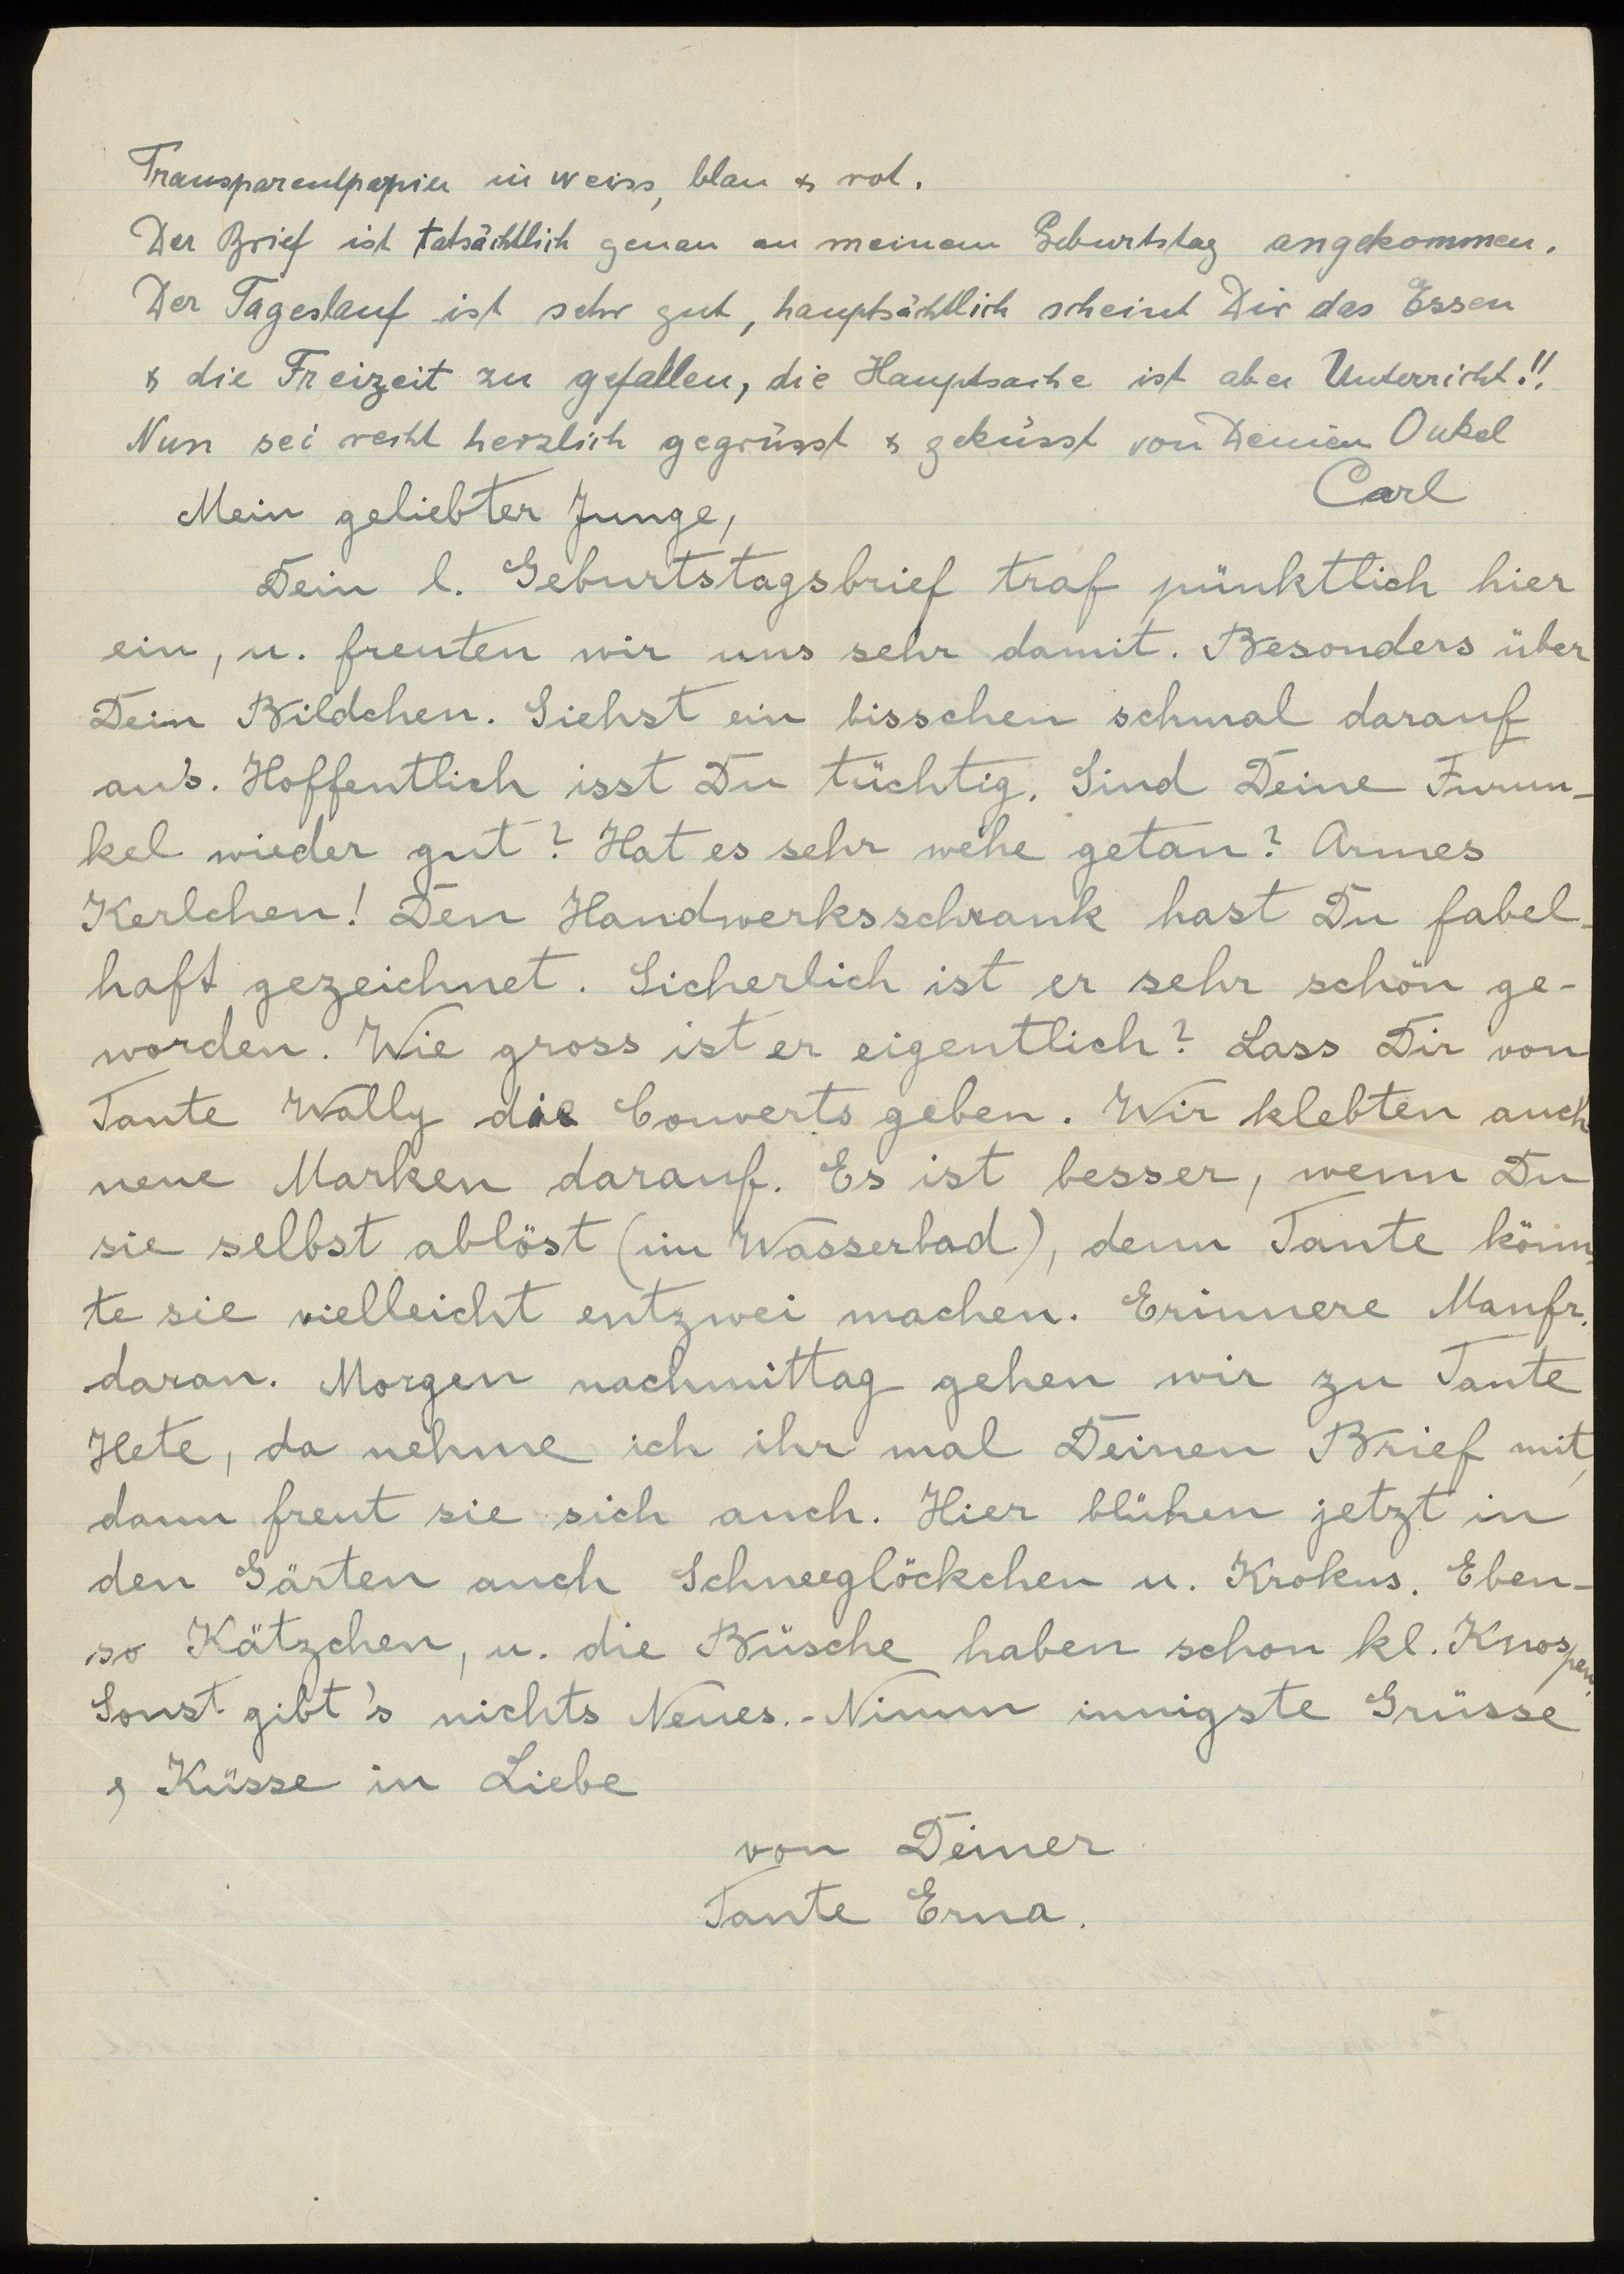 Transparentpapier in weiss, blau & rot.
Der Brief ist tatsächtlich genau an meinem Geburtstag angekommen.
Der Tageslauf ist sehr gut, hauptsächtlich scheint Dir das Essen
& die Freizeit zu gefallen, die Hauptsache ist aber Unterricht!!
Nun sei recht herzlich gegrüsst & geküsst von Deinem Onkel
Carl
Mein geliebter Junge,
Dein l. Geburtstagsbrief traf pünktlich hier
ein, u. freuten wir uns sehr damit. Besonders über
Dein Bildchen. Siehst ein bisschen schmal darauf
aus. Hoffentlich isst Du tüchtig. Sind Deine Furun-
kel wieder gut? Hat es sehr wehe getan? Armes
Kerlchen! Den Handwerksschrank hast Du fabel-
haft gezeichnet. Sicherlich ist er sehr schön ge-
worden. Wie gross ist er eigentlich? Lass Dir von
Tante Wally die Couverts geben. Wir klebten auch
neue Marken darauf. Es ist besser, wenn Du
sie selbst ablöst (im Wasserbad), denn Tante könn-
te sie vielleicht entzwei machen. Erinnere Manfr.
daran. Morgen nachmittag gehen wir zu Tante
Hete, da nehme ich ihr mal Deinen Brief mit,
dann freut sie sich auch. Hier blühen jetzt in
den Gärten auch Schneeglöckchen u. Krokus. Eben-
so Kätzchen, u. die Büsche haben schon kl. Knospen.
Sonst gibt's nichts Neues. - Nimm innigste Grüsse
& Küsse in Liebe
von Deiner
Tante Erna.